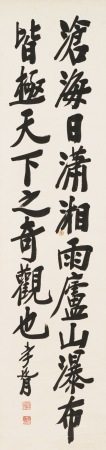 滄海日瀟湘雨廬山瀑布
皆極天下之奇觀也 孝胥